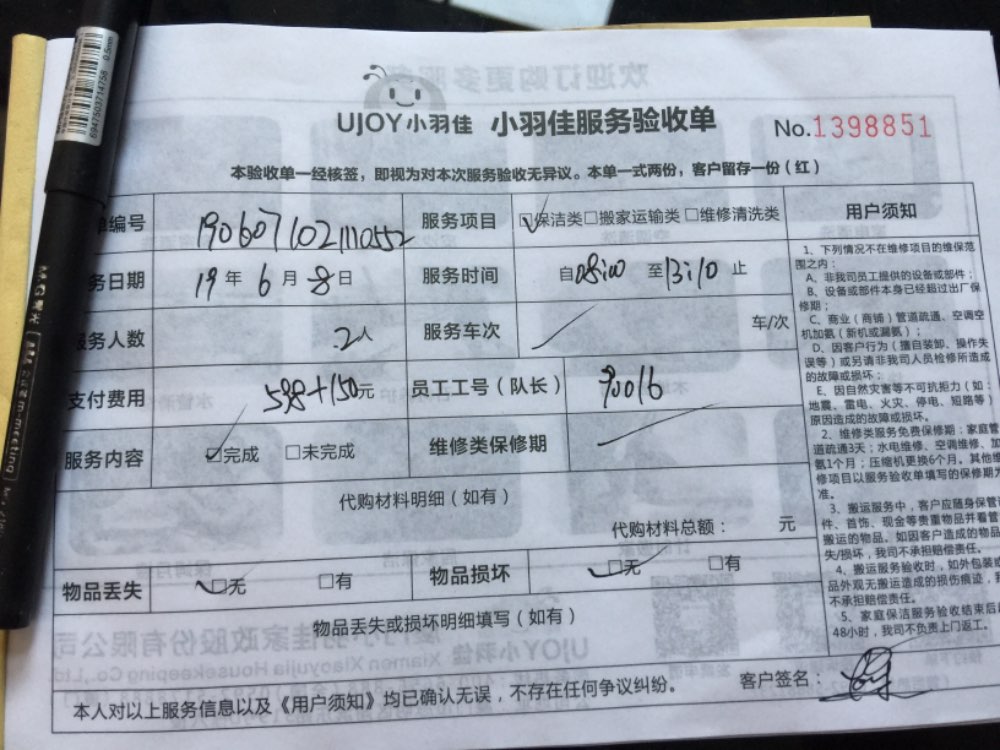 UJOY小羽佳 小羽佳服务验收单 No.1398851
本验收单一经核签，即视为对本次服务验收无异议。本单一式两份，客户留存一份（红）
单编号 1906071021110552 服务项目 ☑保洁类□搬家运输类□维修清洗类
务日期 19年6月8日 服务时间 自08:00至13:10止
服务人数 2人 服务车次 车/次
支付费用 598+150元 员工工号（队长） 90016
服务内容 ☑完成 □未完成 维修类保修期
代购材料明细（如有）
代购材料总额： 元
物品丢失 ☑无 □有 物品损坏 ☑无 □有
物品丢失或损坏明细填写（如有）
本人对以上服务信息以及《用户须知》均已确认无误，不存在任何争议纠纷。
客户签名：
用户须知
1、下列情况不在维修项目的维保范
围之内：
A、非我司员工提供的设备或部件；
B、设备或部件本身已经超过出厂保
修期；
C、商业（商铺）管道疏通、空调空
机加氨（新机或漏氨）；
D、因客户行为（擅自装卸、操作失
误等）或另请非我司人员检修所造成
的故障或损坏；
E、因自然灾害等不可抗拒力（如：
地震、雷电、火灾、停电、短路等）
原因造成的故障或损坏。
2、维修类服务免费保修期：家庭管
道疏通3天；水电维修、空调维修、加
氨1个月；压缩机更换6个月。其他维
修项目以服务验收单填写的保修期为
准。
3、搬运服务中，客户应随身保管
件、首饰、现金等贵重物品并看管
搬运的物品。如因客户造成的物品
失/损坏，我司不承担赔偿责任。
4、搬运服务验收时，如外包装或
品外观无搬运造成的损伤痕迹，
不承担赔偿责任。
5、家庭保洁服务验收结束后
48小时，我司不负责上门返工。
M&G晨光
m-meeting
6947503714758 0.5mm